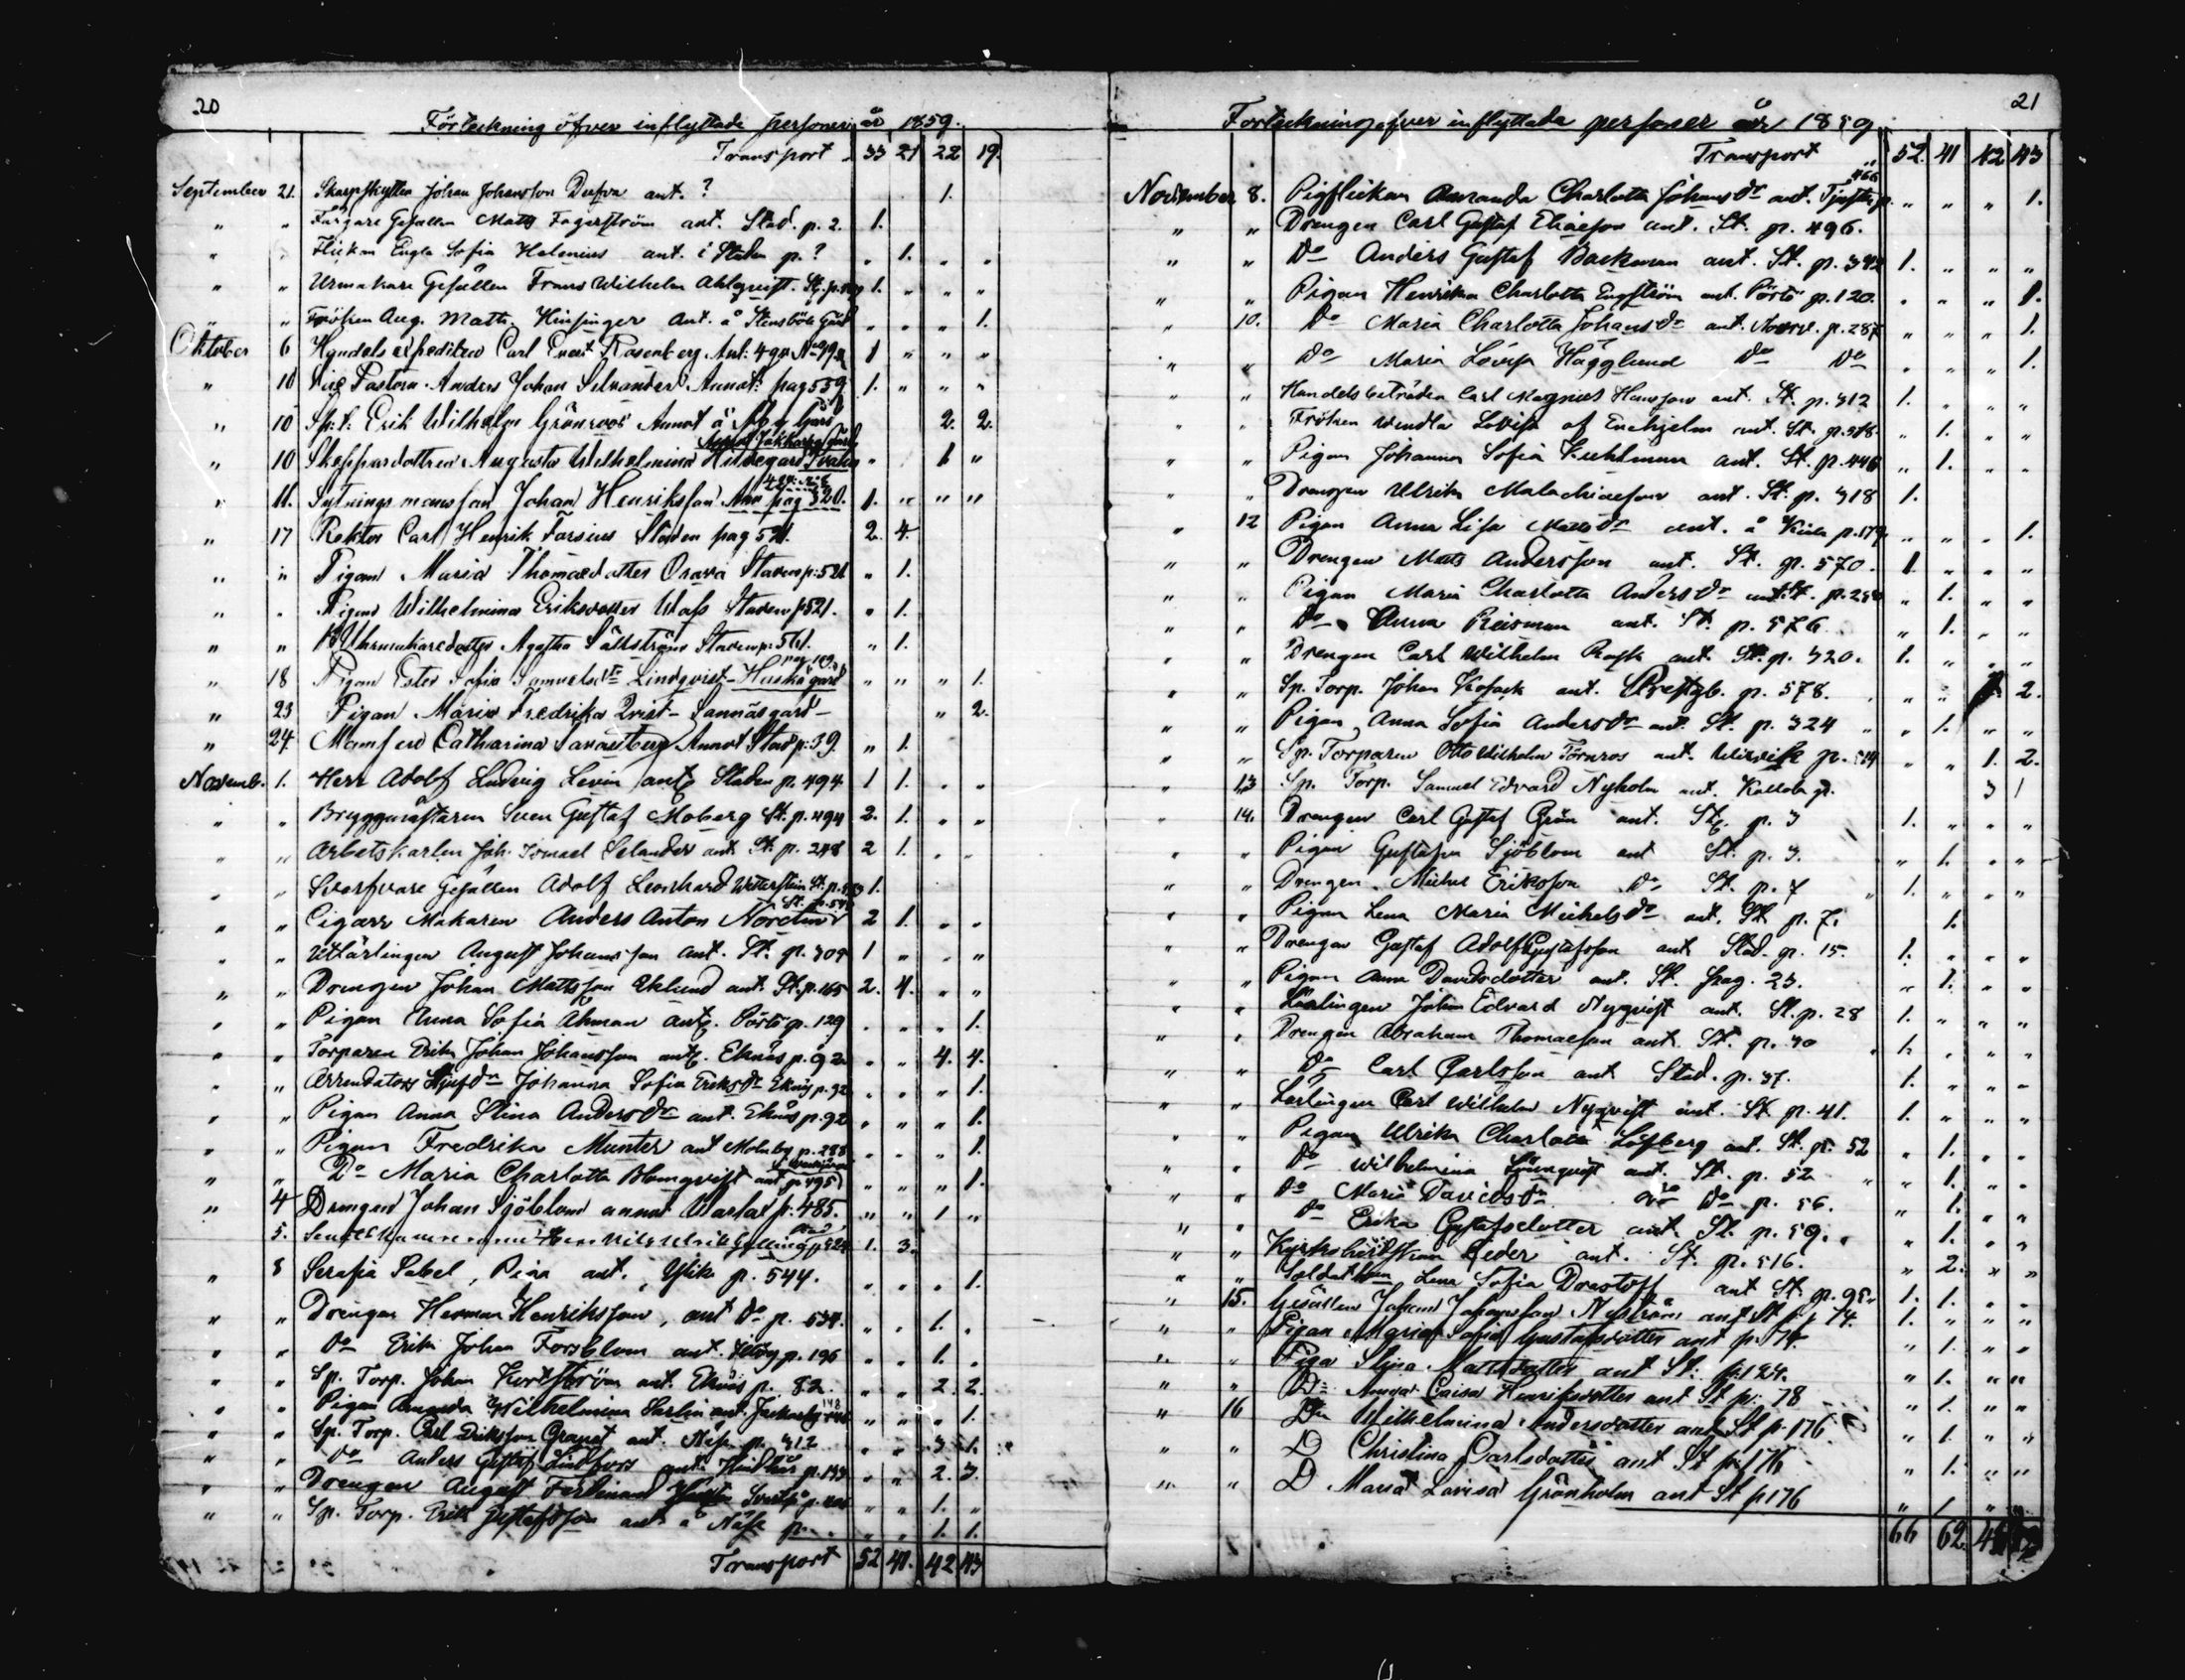 20
Förteckning öfver inflyttade personer år 1859.
Transport 33 21 22 19.
September 21. Skarpskytten Johan Johansson Dufva ant. ? 1.
" " Färgare Gesällen Matts Fagerström ant. Stad. p. 2. 1.
" " Flickan Engla Sofia Helenius ant. i Staden p. ? " 1. " "
" " Urmakare Gesällen Frans Wilhelm Ahlqvist. St. p. 1. " " "
" " Fröken Aug. Math. Hisinger ant. å Stensböle Gård " " " 1.
Oktober 6 Handels expediten Carl Evert Rosenberg. Ant: 1 " " "
" 10 Vice Pastorn Anders Johan Selvander Annot: pag 559 1. " " "
" 10 Sp: t: Erik Wilhelm Grönroos Annot å Gård 2. 2.
" 10 Skeppardottren Augusta Wilhelmina Hildegard " 1 "
" 11. Sytningsmansson Johan Henriksson Ann pag 520. 1. " " "
" 17 Rektor Carl Henrik Forsius Staden pag 521. 2. 4.
" " Pigan Maria Thomasdotter Orava Staden p: 521 " 1.
" " Pigan Wilhelmina Eriksdotter Wass Staden p 521. " 1.
" " Agatha Sällström Staden p: 561. " 1.
" 18 Pigan Ester Sofia Samuelsdr Lindqvist - Huskå gård " " " 1.
" 23 Pigan Maria Fredrika Qvist - Sannäs gård - " 2.
" 24 Mamsell Catharina Annot Stad p: 39. " 1.
Novemb. 1. Herr Adolf Ludvig Levin ant. Staden p. 494 1 1. " "
" " Bryggmästaren Sven Gustaf Moberg St. p. 494 2. 1. " "
" " Arbetskarlen Joh. Ismael Selander ant. St. p. 248 2 1. " "
" " Svarfvare Gesällen Adolf Leonhard Wetterstein St. p. 1.
" " Cigarr Makaren Anders Anton 2 1. " "
" " Utlärlingen August Johansson ant. St. p. 309 1 " " "
" " Drengen Johan Mattsson Eklund ant. St. p. 165 2. 4. " "
" " Pigan Anna Sofia Åhman ant. Pörtö p. 129 " " " 1.
" " Torparen Erik Johan Johansson ant. Eknäs p. 92 " " 4. 4.
" " Arrendators Johanna Sofia Eriksdr Eknäs p. 92 " " " 1.
" " Pigan Anna Stina Andersdr ant. Eknäs p. 92 " " " 1.
" " Pigan Fredrika Munter ant Molnby p. 288 " " " 1.
" " Do Maria Charlotta Blomqvist ant p. 495 " " " 1.
" 4 Drengen Johan Sjöblom annot Warlax p: 485. " " 1 "
5. 1. 3.
" 8 Serafia Sabel, Piga ant. Ylike p. 544. " " " 1.
" " Drengen Herman Henriksson, ant Do p. 534. " " 1. "
" " Do Erik Johan Forsblom ant. p. 196 " " 1. "
" " Sp. Torp. Johan Kortström ant. Eknäs p. 82. " " 2. 2.
" " Pigan Amanda Wilhelmina Sarlin ant. " " " 1.
" " Sp. Torp. Carl Eriksson Granat ant. Näse p. 312 " " 3 1.
" " Do Anders Gustaf Lindfors ant. Hindhår p. 133 " " 2. 3.
" " Drengen August Ferdinand " " 1. "
" " Sp. Torp. Erik Gustafsson ant. å Näse p. " " 1. 1.
Transport 52 41. 42. 43
21
Förteckning öfver inflyttade personer år 1859
Transport 52. 41 42 43
November 8. Pigflickan Amanda Charlotta Johansdr ant. " " " 1.
" " Drengen Carl Gustaf Eliaeson ant. St. p. 496.
" " Do Anders Gustaf Backman ant. St. p. 1. " " "
" " Pigan Henrika Charlotta Engström ant. Pörtö p. 120. " " " 1.
" 10. Do Maria Charlotta Johansdr ant. p. 287 " " " 1.
" " Do Maria Lovisa Hägglund Do Do " " " 1.
" " Handelsbeträden Carl Magnus Hansson ant. St. p. 312 1. " " "
" " Fröken Wendla Lovisa af Enehjelm ant. St. p. 318. " 1. " "
" " Pigan Johanna Sofia Kuhlman ant. St. p. 446 " 1. " "
" " Drengen Ulrik Malachiaeson ant. St. p. 318 1.
" 12 Pigan Anna Lisa Mattsdr ant. å Kiala p. 179. " " " 1.
" " Drengen Matts Andersson ant. St. p. 570. 1. " " "
" " Pigan Maria Charlotta Andersdr ant. St. p. " 1. " "
" " Do Anna Reisman ant. St. p. 576. " 1. " "
" " Drengen Carl Wilhelm Rask ant. St. p. 320. 1. " " "
" " Sp. Torp. Johan Kosack ant. Prestgb. p. 578. " " 2.
" " Pigan Anna Sofia Andersdr ant. St. p. 324 " 1. " "
" " Sp. Torparen Otto Wilhelm Törnroos ant. p. " " 1. 2.
" 13 Sp. Torp. Samuel Edvard Nyholm ant. Kallola p. 3 1
" 14. Drengen Carl Gustaf Grön ant. St. p. 3 1. " " "
" " Pigan Gustafva Sjöblom ant St. p. 3. " 1. " "
" " Drengen Michel Eriksson Do St. p. 7 1. " " "
" " Pigan Lena Maria Michelsdr ant. St. p. 7. 1.
" " Drengen Gustaf Adolf Gustafsson ant Stad. p. 15. 1. " " "
" " Pigan Anna Davidsdotter ant. St. pag. 23. " 1. " "
" " Lärlingen Johan Edvard Nyqvist ant. St. p. 28 1. " " "
" " Drengen Abraham Thomaeson ant. St. p. 30 1. " " "
" " Do Carl Carlsson ant Stad. p. 37. 1. " " "
" " Lärlingen Carl Wilhelm Nyqvist ant. St p. 41. 1. " " "
" " Pigan Ulrika Charlotta Löfberg ant. St. p. 52 " 1. " "
" " Do Wilhelmina Lönnqvist ant. St. p. 52 " 1. " "
" " Do Maria Davidsdr Do Do p. 56. " 1. " "
" " Do Erika Gustafsdotter ant. St. p. 59. " 1. " "
" " Ceder ant. St. p. 516. " 2. " "
" " Soldat Lena Sofia Drestoff ant St. p. 95. 1. 1. " "
" 15. Gesällen Johan Johansson Nyström ant St p. 74. 1. " " "
" " Pigan Maria Sofia Gustafsdotter ant p. 74. " 1. " "
" " Piga Stina Mattsdotter ant St. p. 124. " 1. " "
" " Do Anna Caisa Henriksdotter ant St p: 78 " 1. " "
" 16 Do Wilhelmina Andersdotter ant St p. 176 " 1. " "
" " D Christina Carlsdotter ant St p. 176 " 1. " "
" " D Maria Lovisa Grönholm ant St p 176 " 1. " "
66 62.